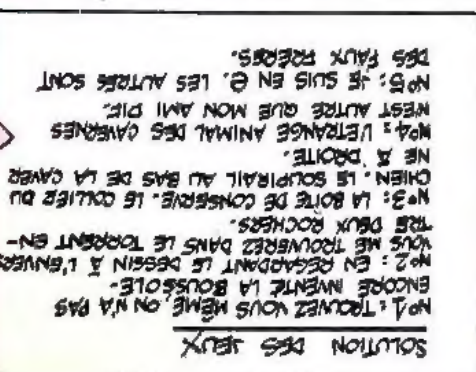 SOLUTION DES JEUX
N°1: TROUVEZ VOUS MÊME, ON N'A PAS
ENCORE INVENTÉ LA BOUSSOLE.
N°2: EN REGARDANT LE DESSIN À L'ENVERS
VOUS ME TROUVEREZ DANS LE TORRENT EN-
TRE DEUX ROCHERS.
N°3: LA BOITE DE CONSERVE. LE COLLIER DU
CHIEN. LE SOUPIRAIL AU BAS DE LA CAVER
NE À DROITE.
N°4: L'ETRANGE ANIMAL DES CAVERNES
N'EST AUTRE QUE MON AMI PIF.
N°5: JE SUIS EN E. LES AUTRES SONT
DES FAUX FRÈRES.